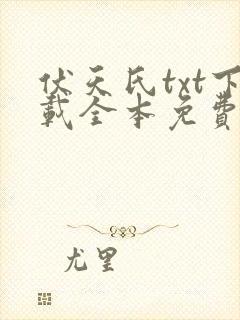 伏天氏txt下
載全本免費
尤里